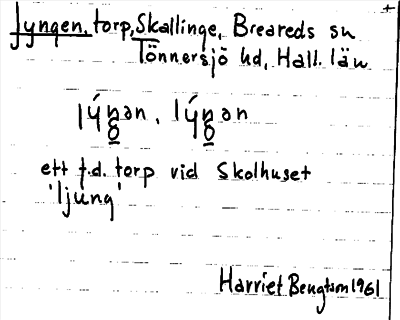 Lyngen, torp, Skallinge, Breareds sn
Tönnersjö hd, Hall. län
ett f.d. torp vid Skolhuset
'ljung'
Harriet Bengtson 1961